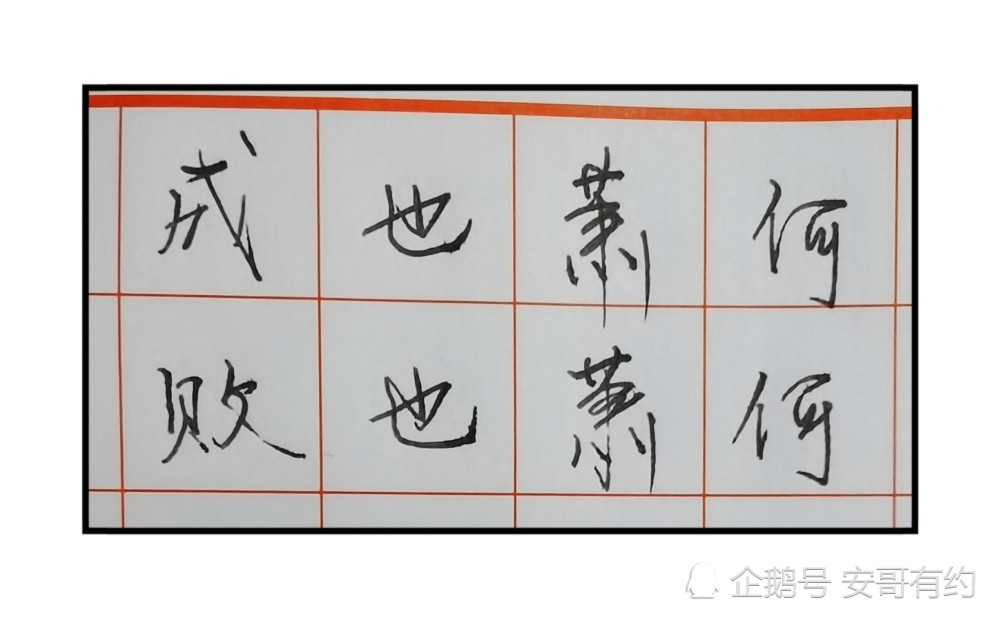 成也萧何
败也萧何
企鹅号 安哥有约